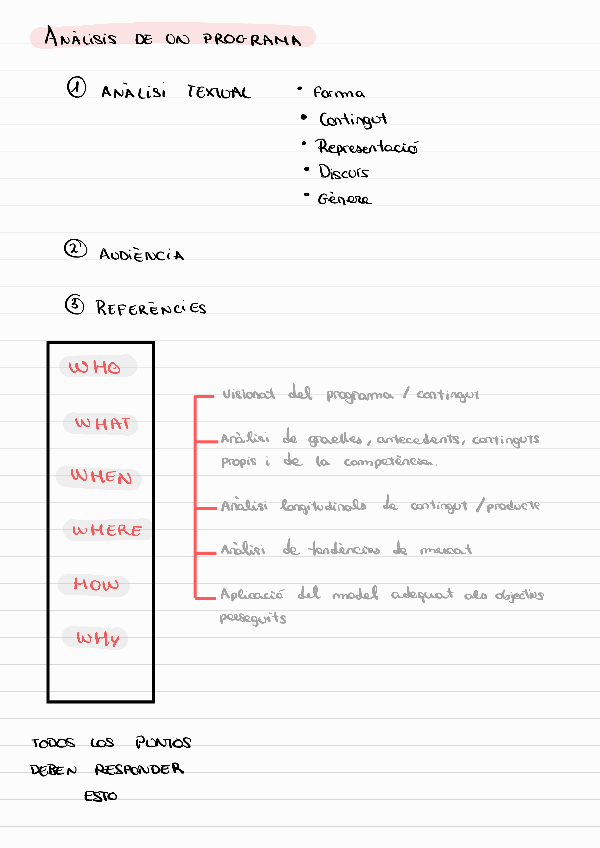 ANÀLISIS DE UN PROGRAMA
① ANÀLISI TEXTUAL
• Forma
• Contingut
• Representació
• Discurs
• Gènere
② AUDIÈNCIA
③ REFERÈNCIES
WHO
WHAT
WHEN
WHERE
HOW
WHY
Visionat del programa / contingut
Anàlisi de graelles, antecedents, continguts
propis i de la competència.
Anàlisi longitudinals de contingut / producte
Anàlisi de tendències de mercat
Aplicació del model adequat als objectius
perseguits
TODOS LOS PUNTOS
DEBEN RESPONDER
ESTO